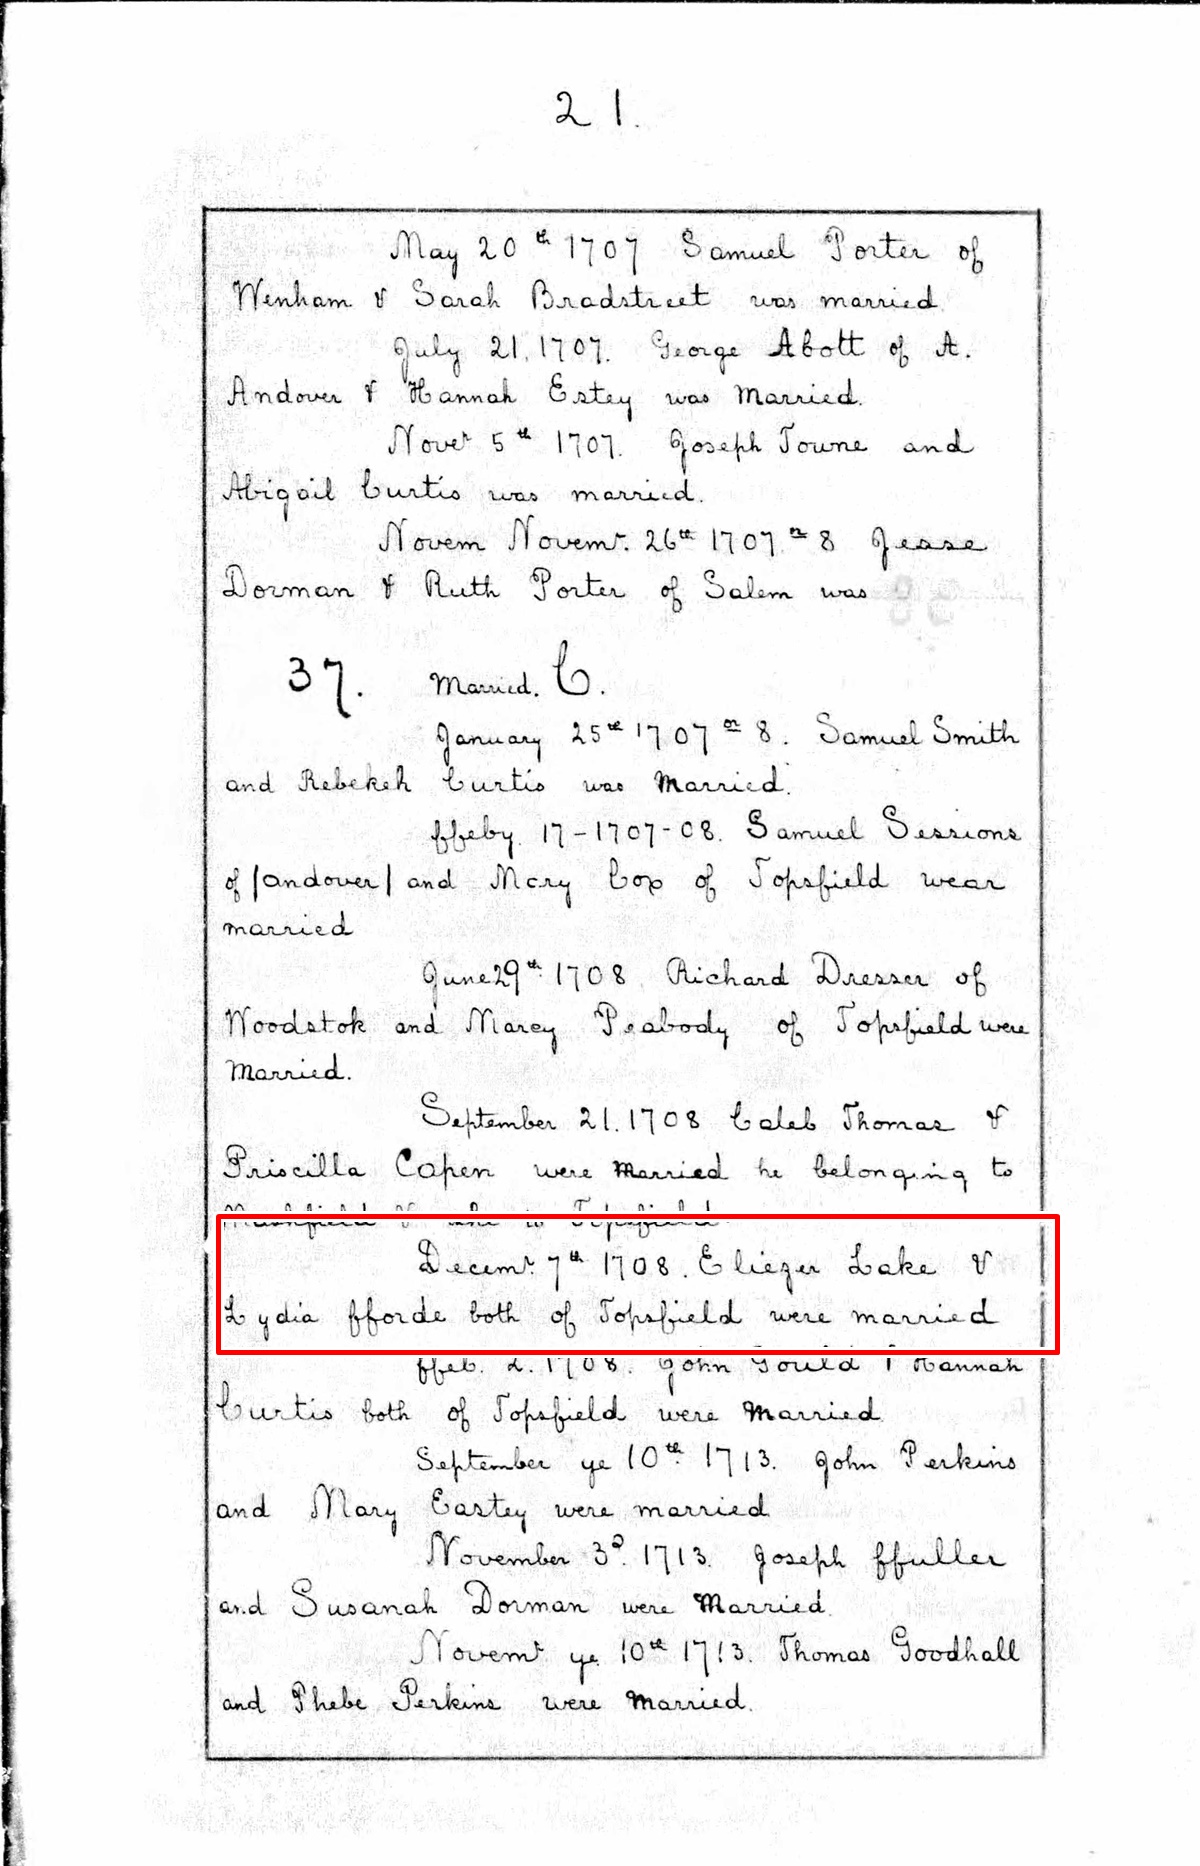 21.
May 20th 1707 Samuel Porter of
Wenham & Sarah Bradstreet was married
July 21, 1707. George Abott of A.
Andover & Hannah Estey was Married.
Nover 5th 1707. Joseph Towne and
Abigail Curtis was married.
Novem Novemr. 26th 1707 or 8 Jesse
Dorman & Ruth Porter of Salem was
37. Married. C.
January 25th 1707 or 8. Samuel Smith
and Rebekeh Curtis was Married.
ffeby. 17-1707-08. Samuel Sessions
of |andover| and Mary Cop of Topsfield wear
married
June 29th 1708 Richard Dresser of
Woodstok and Marcy Peabody of Topsfield were
Married.
September 21. 1708 Caleb Thomas &
Priscilla Capen were Married he belonging to
Mashfield & she to Topsfield.
Decemr. 7th 1708. Eliezer Lake &
Lydia fforde both of Topsfield were married
ffeb. 2. 1708. John Gould & Hannah
Curtis both of Topsfield were Married
September ye 10th 1713. John Perkins
and Mary Eastey were married
November 3d. 1713. Joseph ffuller
and Susanah Dorman were Married.
Novemr ye 10th 1713. Thomas Goodhall
and Phebe Perkins were Married.